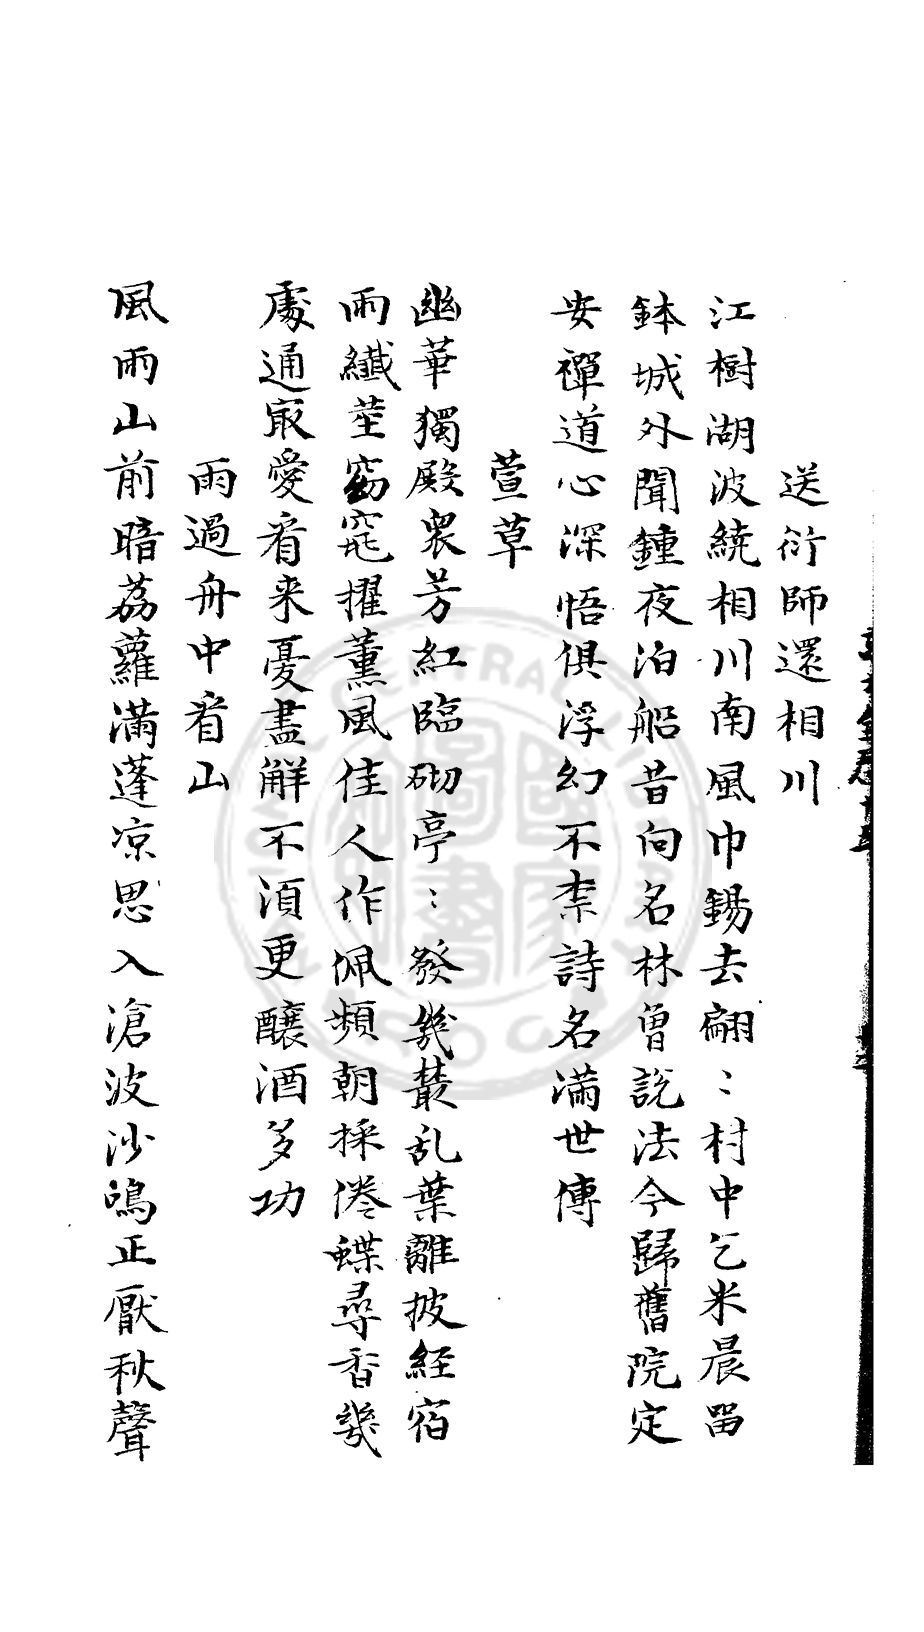 送衍師還相川
江樹湖波繞相川南風巾錫去翩〻村中乞米晨留
鉢城外聞鍾夜泊船昔向名林曾説法今歸舊院定
安禪道心深悟俱浮幻不柰詩名滿世傳
萱草
幽華獨殿衆芳紅臨砌亭〻發幾叢乱葉離披経宿
雨纖莖窈窕擢薰風佳人作佩頻朝採倦蝶尋香幾
處通最愛看来憂盡解不須更釀酒多功
雨過舟中看山
風雨山前暗荔蘿滿蓬凉思入滄波沙鳴正厭秋聲
CENTRAL LIBRARY
R.O.C.
國家圖書